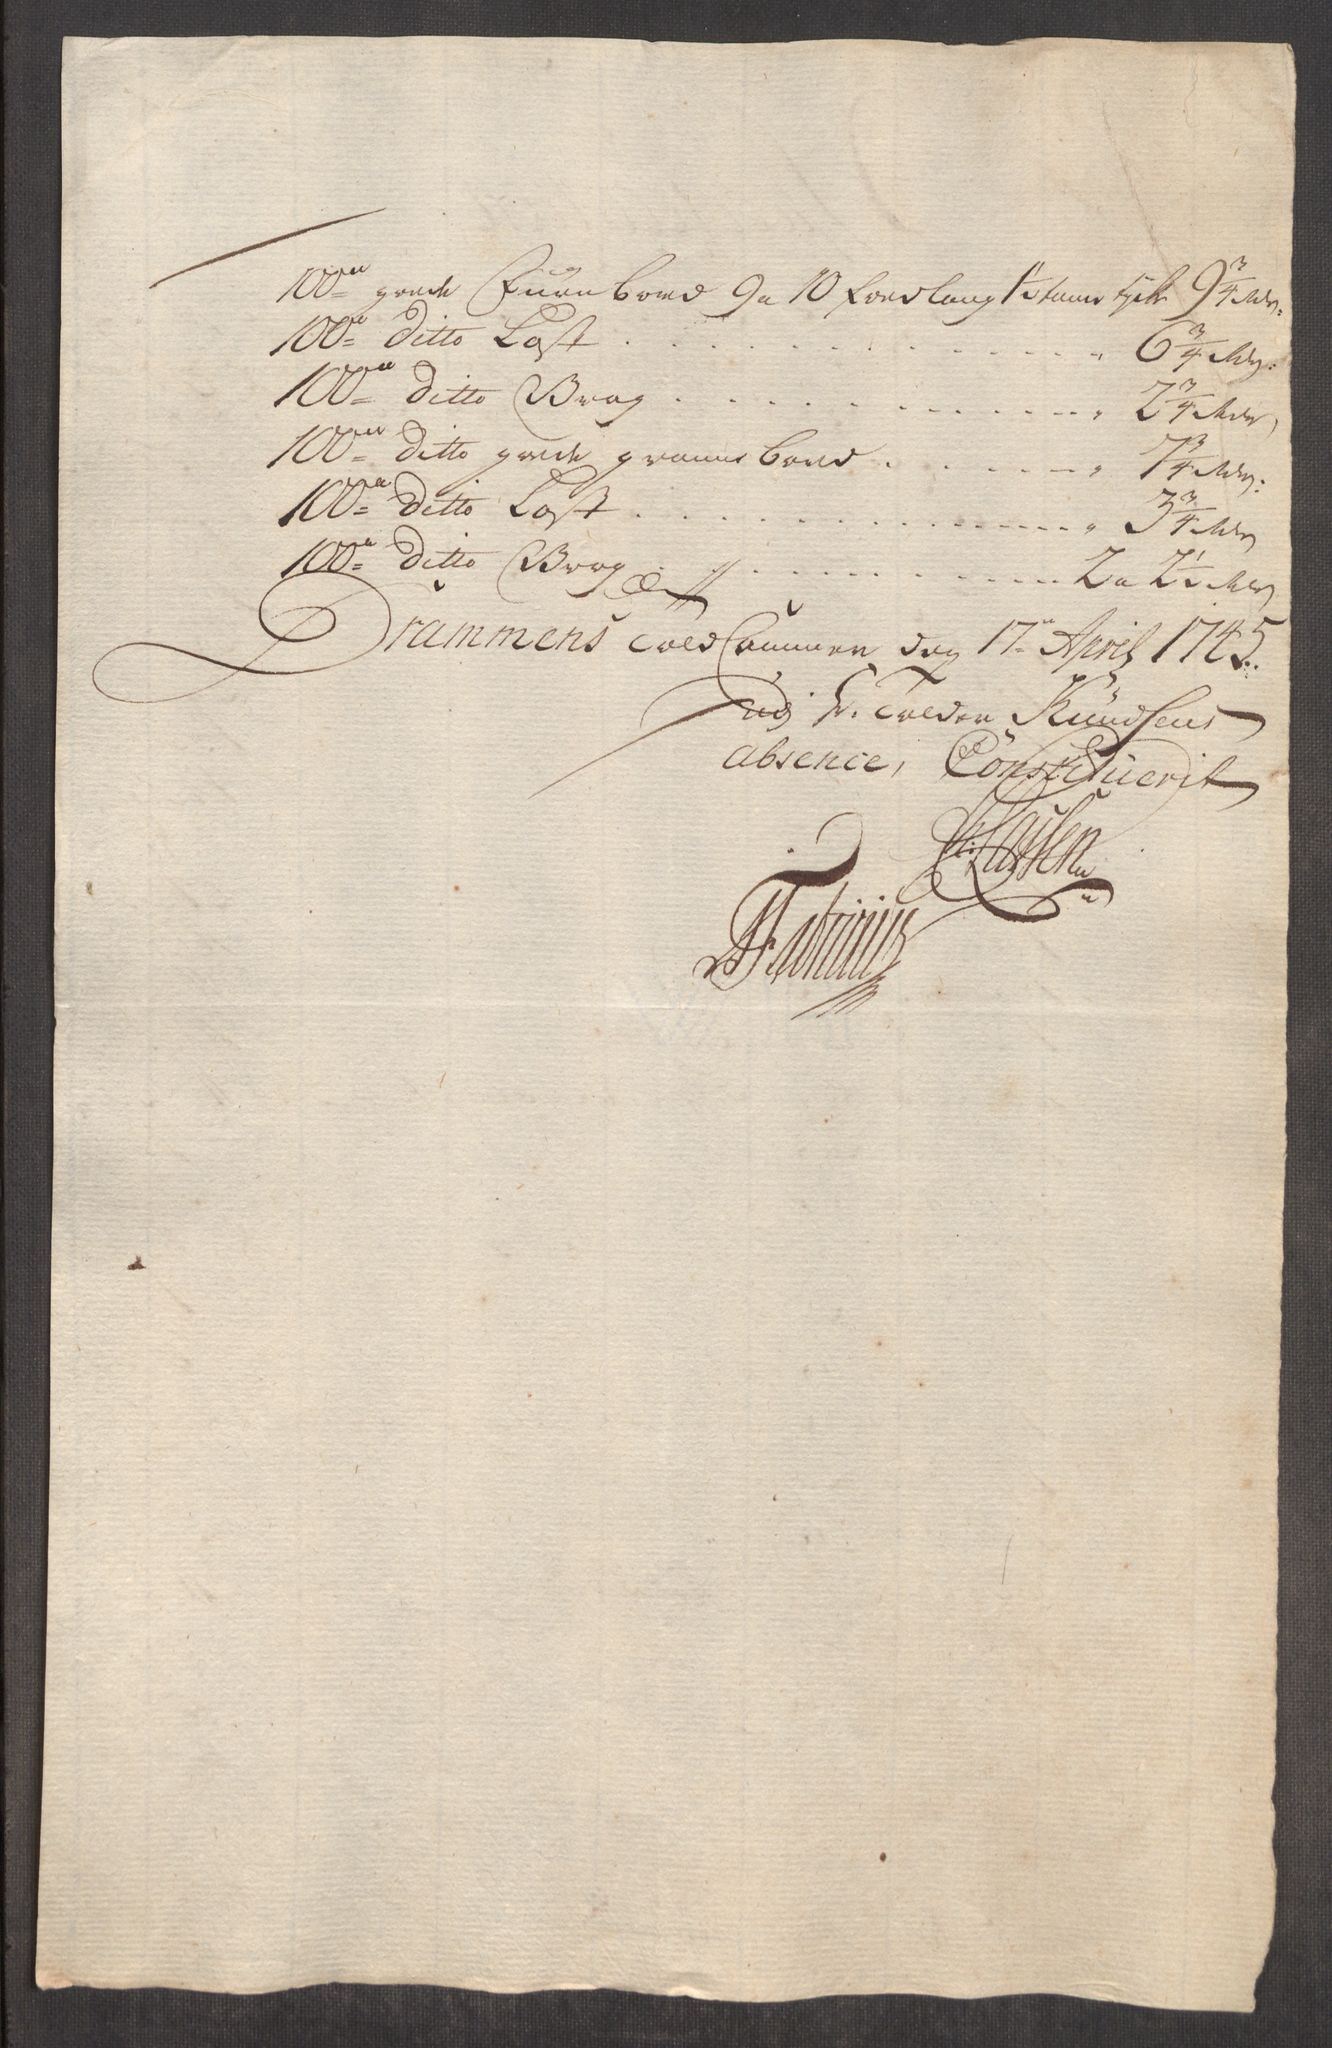 100de gode Furubord 9 a 10 foed lang 1½ tomt tyk 9¾ Rdr:
100de ditto Last . . . . . . . . . . . . 6¾ Rdr:
100de ditto Vrag . . . . . . . . . . . . 2¾ Rdr
100de ditto gode granebord . . . . . . 7¾ Rdr:
100de ditto Last . . . . . . . . . . . . 3¾ Rdr
100de ditto Vrag . . . . . . . . . . . . 2 a 2½ Rdr
Drammens Told Cammer den 17de April 1745.
Udj Hr. Tolder Knudsens
absence, Constituerit
Lassen
Fabritius